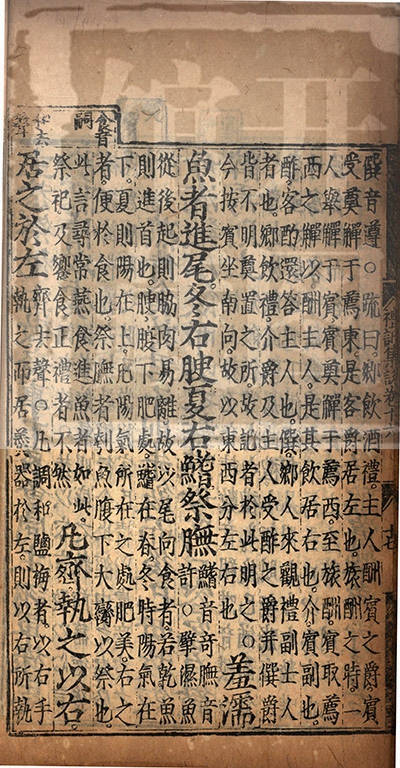 僎音遵○疏曰鄉飲酒禮主人酬賓之爵賓
受奠觶于薦東是客爵居左也旅酬之時一
人舉觶于賓賓奠觶于薦西至旅酬賓取薦
西之觶以酬主人是其飲居右也介賓副也
酢客酌還答主人也僎鄉人來觀禮副主人
者也鄉飲禮介爵及主人受酢之爵并僎爵
皆不明奠置之所故記者於此明之○
今按賓坐南向故以東西分左右也
羞濡
魚者進尾冬右腴夏右鰭祭膴
鰭音奇膴音
許○擘濕魚
從後起則脇肉易離故以尾向食者若乾魚
則進首也腴腹下肥處鰭在脊冬時陽氣在
下夏則陽在上凡陽氣所在之處肥美右之
者便於食也祭膴者刳魚腹下大臠以祭也
此言尋常燕食進魚者如此
祭祀及饗食正禮者不然
凡齊執之以右
居之於左
齊去聲○凡調和鹽梅者以右手
執之而居羹器於左則以右所執
食音
嗣
和去
聲